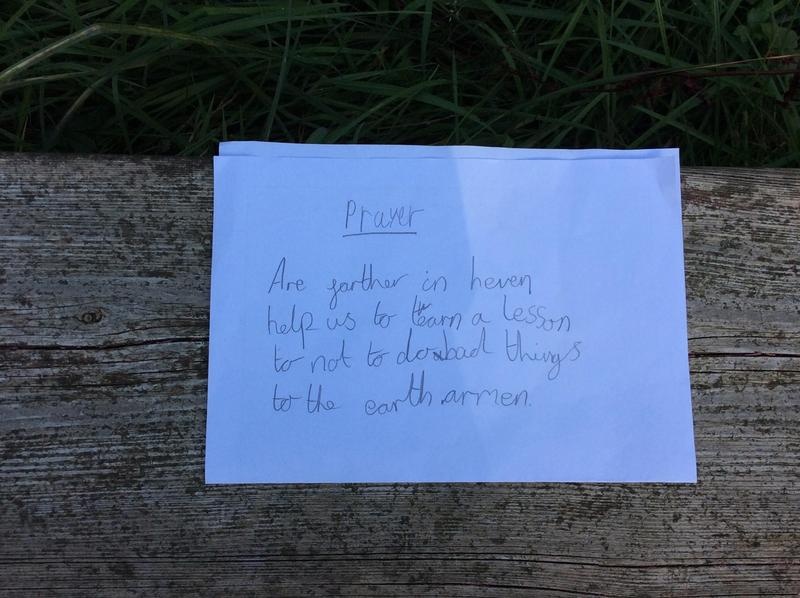 Prayer
Are farther in heven
help us to learn a lesson
to not to do bad things
to the earth. armen.